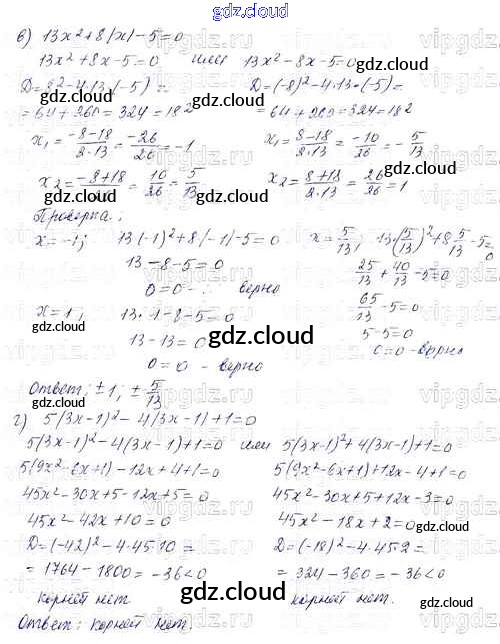 gdz.cloud
в) 13x²+8|x|-5=0
13x²+8x-5=0 или 13x²-8x-5=0
D=8²-4·13·(-5)= D=(-8)²-4·13·(-5)=
=64+260=324=18² =64+260=324=18²
x₁=(-8-18)/(2·13)=-26/26=-1 x₁=(8-18)/(2·13)=-10/26=-5/13
x₂=(-8+18)/26=10/26=5/13 x₂=(8+18)/(2·13)=26/26=1
Проверка:
x=-1; 13(-1)²+8(-1)-5=0 x=5/13; 13·(5/13)²+8·5/13-5=0
13-8-5=0 25/13+40/13-5=0
0=0- верно 65/13-5=0
x=1; 13·1-8-5=0 5-5=0
13-13=0 0=0-верно
0=0 - верно
Ответ: ±1; ±5/13
г) 5(3x-1)²-4|3x-1|+1=0
5(3x-1)²-4(3x-1)+1=0 или 5(3x-1)²+4(3x-1)+1=0
5(9x²-6x+1)-12x+4+1=0 5(9x²-6x+1)+12x-4+1=0
45x²-30x+5-12x+5=0 45x²-30x+5+12x-3=0
45x²-42x+10=0 45x²-18x+2=0
D=(-42)²-4·45·10= D=(-18)²-4·45·2=
=1764-1800=-36<0 =324-360=-36<0
корней нет корней нет.
Ответ: корней нет.